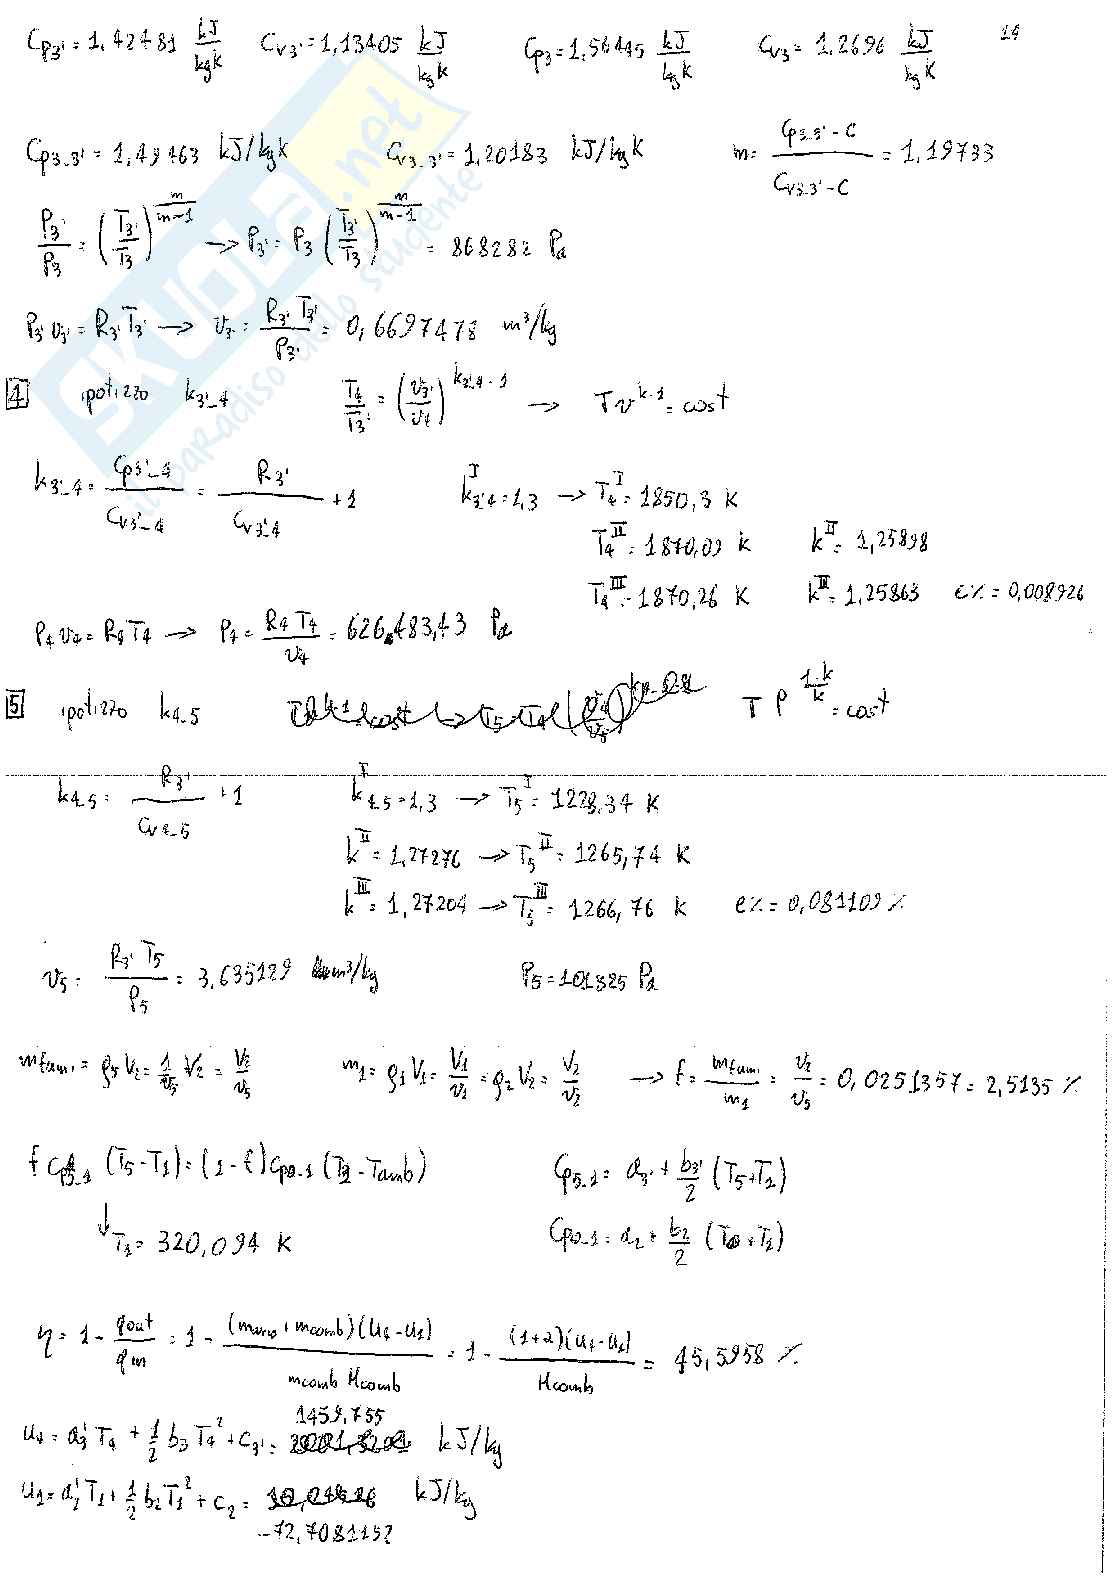 14
Cp3' = 1,42481 kJ/kgK Cv3' = 1,13405 kJ/kgK Cp3 = 1,56445 kJ/kgK Cv3 = 1,2696 kJ/kgK
Cp3-3' = 1,49463 kJ/kgK Cv3-3' = 1,20183 kJ/kgK m = (Cp3-3' - C)/(Cv3-3' - C) = 1,19733
P3'/P3 = (T3'/T3)^(m/(m-1)) → P3' = P3 (T3'/T3)^(m/(m-1)) = 868282 Pa
P3' v3' = R3' T3' → v3' = R3' T3'/P3' = 0,6697478 m³/kg
4 ipotizzo k3'-4 T4/T3' = (v3'/v4)^(k3'-4 - 1) → T v^(k-1) = cost
k3'-4 = Cp3'-4/Cv3'-4 = R3'/Cv3'-4 + 1 k^I 3'-4 = 1,3 → T4^I = 1850,3 K
T4^II = 1870,09 K k^II = 1,25898
T4^III = 1870,26 K k^III = 1,25863 e% = 0,008926
P4 v4 = R4 T4 → P4 = R4 T4/v4 = 626.483,43 Pa
5 ipotizzo k4-5 T P^((1-k)/k) = cost
k4-5 = R3'/Cv4-5 + 1 k^I 4-5 = 1,3 → T5^I = 1228,34 K
k^II = 1,27276 → T5^II = 1265,74 K
k^III = 1,27204 → T5^III = 1266,76 K e% = 0,081109 %
v5 = R3' T5/P5 = 3,635129 m³/kg P5 = 101325 Pa
mfum. = ρ5 V2 = 1/v5 V2 = V2/v5 m1 = ρ1 V1 = V1/v1 = ρ2 V2 = V2/v2 → f = mfum./m1 = v2/v5 = 0,0251357 = 2,5135 %
f cp5-1 (T5 - T1) = (1 - f) cp0-1 (T1 - Tamb) Cp5-1 = a3' + b3'/2 (T5 + T1)
↓ T1 = 320,094 K Cp0-1 = a2 + b2/2 (T0 + T1)
η = 1 - qout/qin = 1 - (maria + mcomb)(u4 - u1)/(mcomb Hcomb) = 1 - (1+α)(u4 - u1)/Hcomb = 45,5958 %
u4 = a3' T4 + 1/2 b3 T4² + c3' = 1459,755 kJ/kg
u1 = a2' T1 + 1/2 b2 T1² + c2 = -72,7081152 kJ/kg
SKUOLA.net
il paradiso dello studente